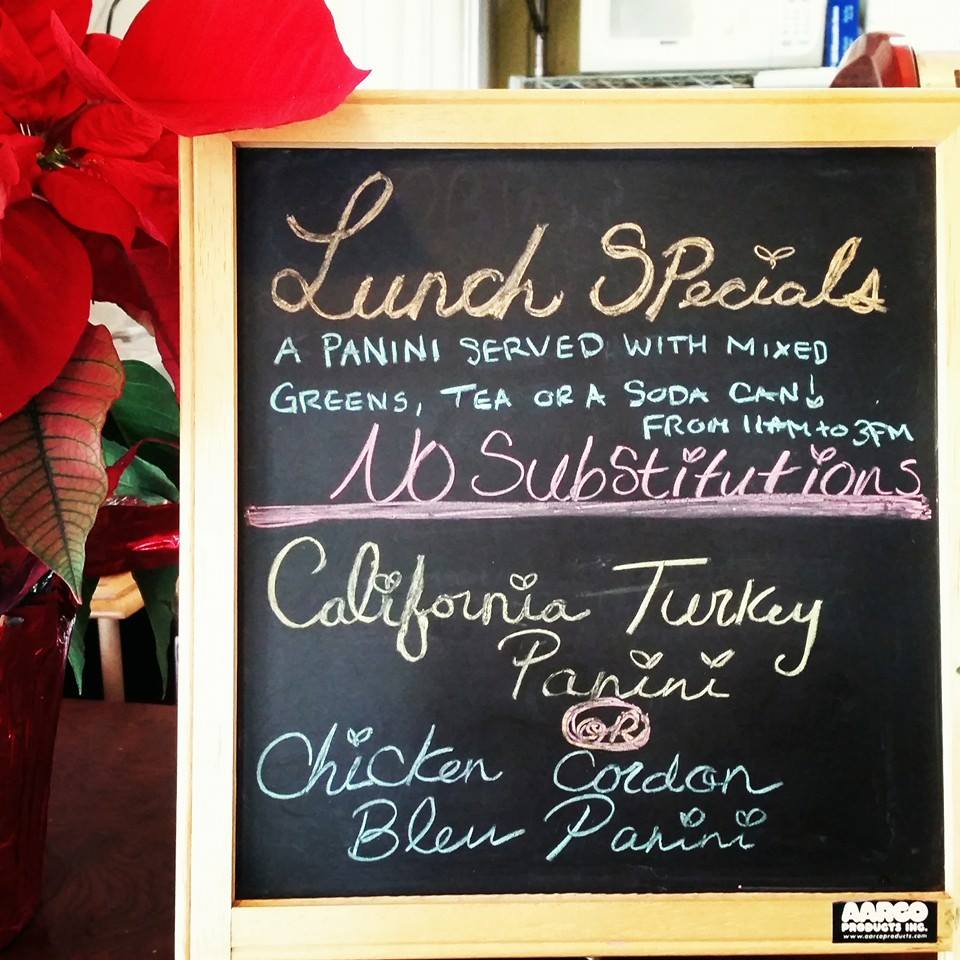 Lunch Specials
A PANINI SERVED WITH MIXED
GREENS, TEA OR A SODA CAN!
FROM 11AM to 3PM
No Substitutions
California Turkey
Panini
OR
Chicken Cordon
Bleu Panini
AARCO
PRODUCTS INC.
www.aarcoproducts.com